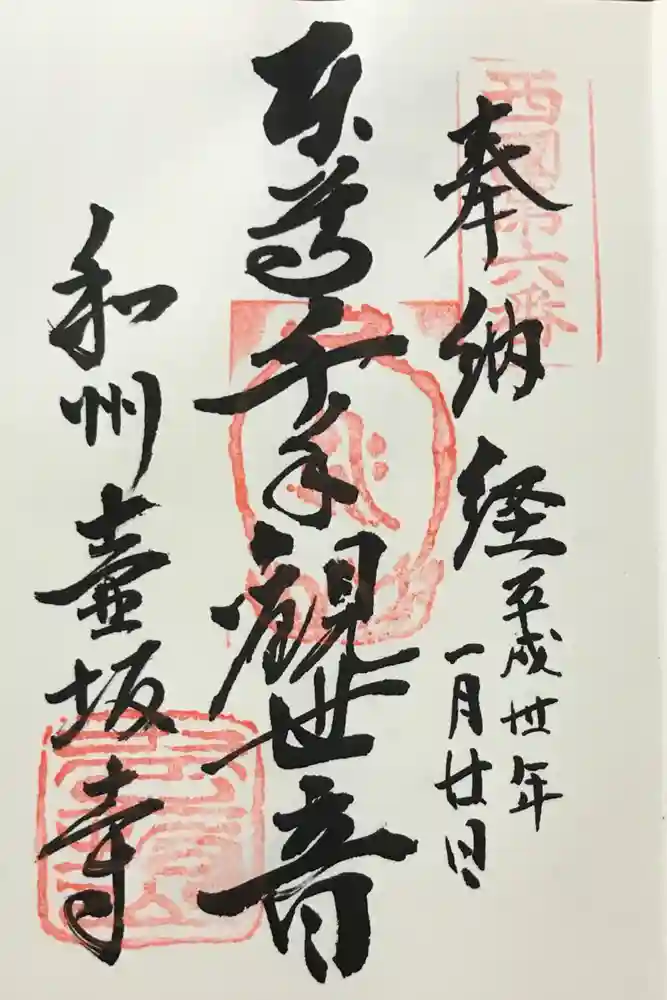 西國第六番
奉納経
平成卅年
一月廿日
本尊千手観世音
和州壷坂寺